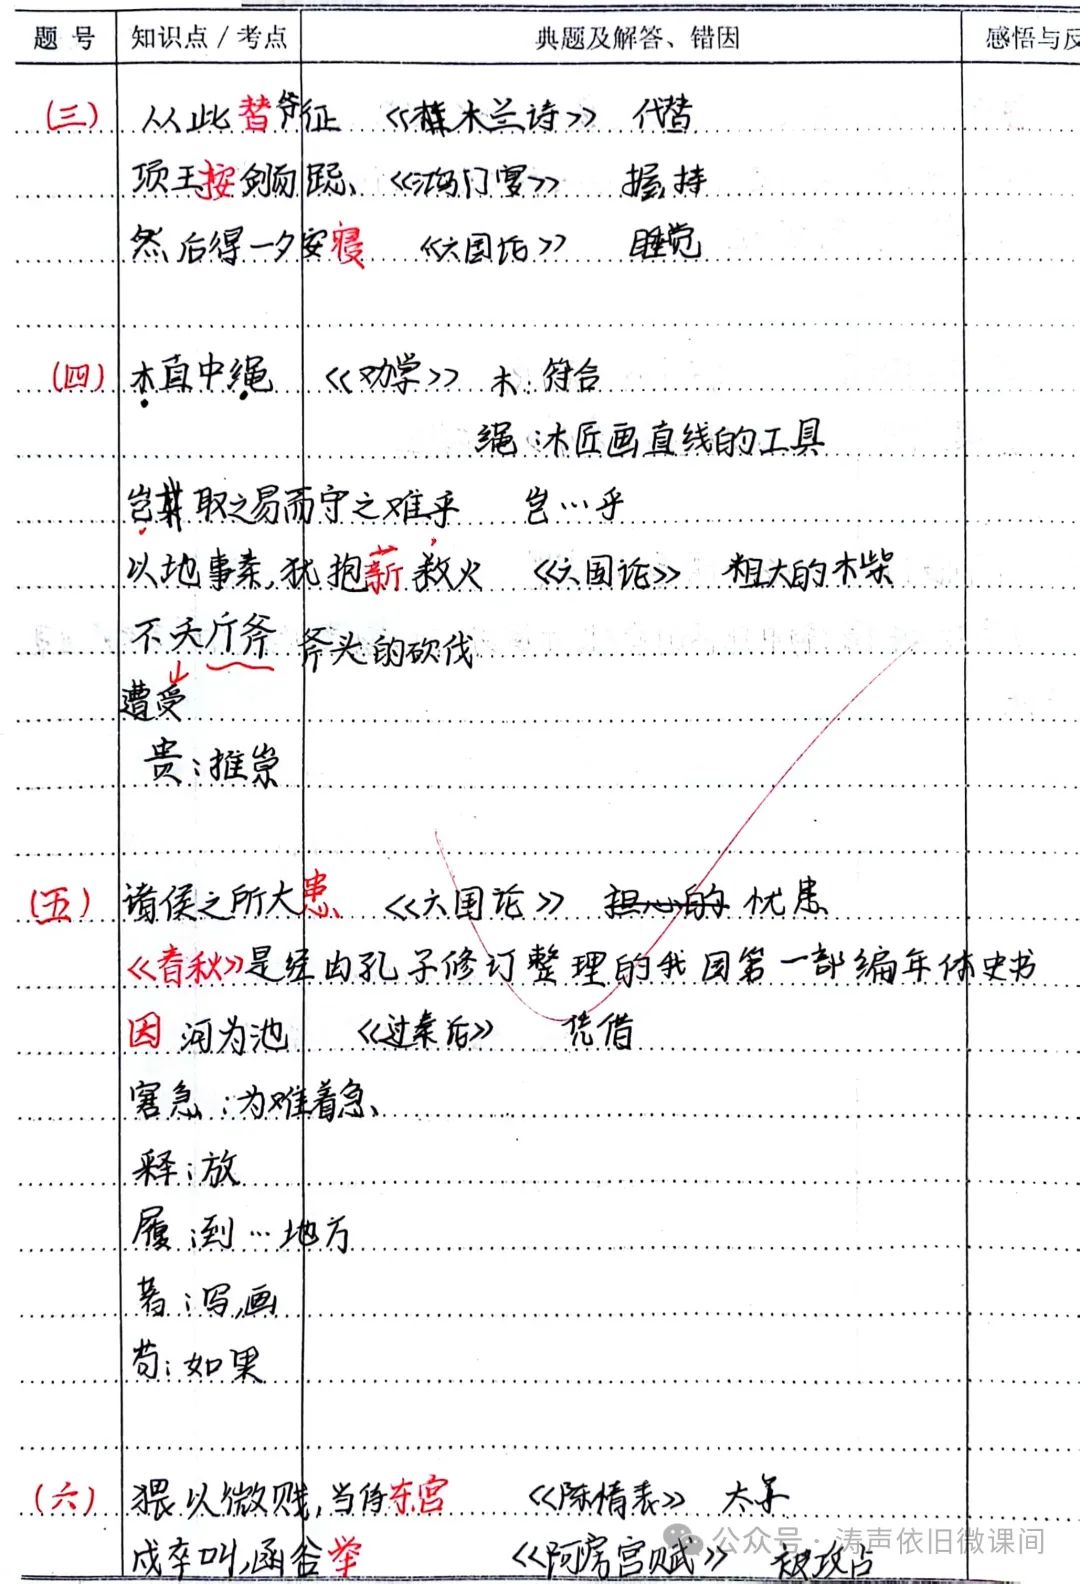 题 号 知识点/考点 典题及解答、错因 感悟与反
(三) 从此替爷征 《木兰诗》 代替
项王按剑而跽、《鸿门宴》 握持
然后得一夕安寝 《六国论》 睡觉
(四) 木直中绳 《劝学》 木:符合
绳:木匠画直线的工具
岂其取之易而守之难乎 岂…乎
以地事秦,犹抱薪救火 《六国论》 粗大的木柴
不夭斤斧 斧头的砍伐
遭受
贵:推崇
(五) 诸侯之所大患 《六国论》 担心的 忧患
《春秋》是经由孔子修订整理的我国第一部编年体史书
因河为池 《过秦论》 凭借
窘急:为难着急
释:放
履:到…地方
著:写,画
苟:如果
(六) 猥以微贱,当侍东宫 《陈情表》 太子
戍卒叫,函谷举 《阿房宫赋》 被攻占
公众号·涛声依旧微课间